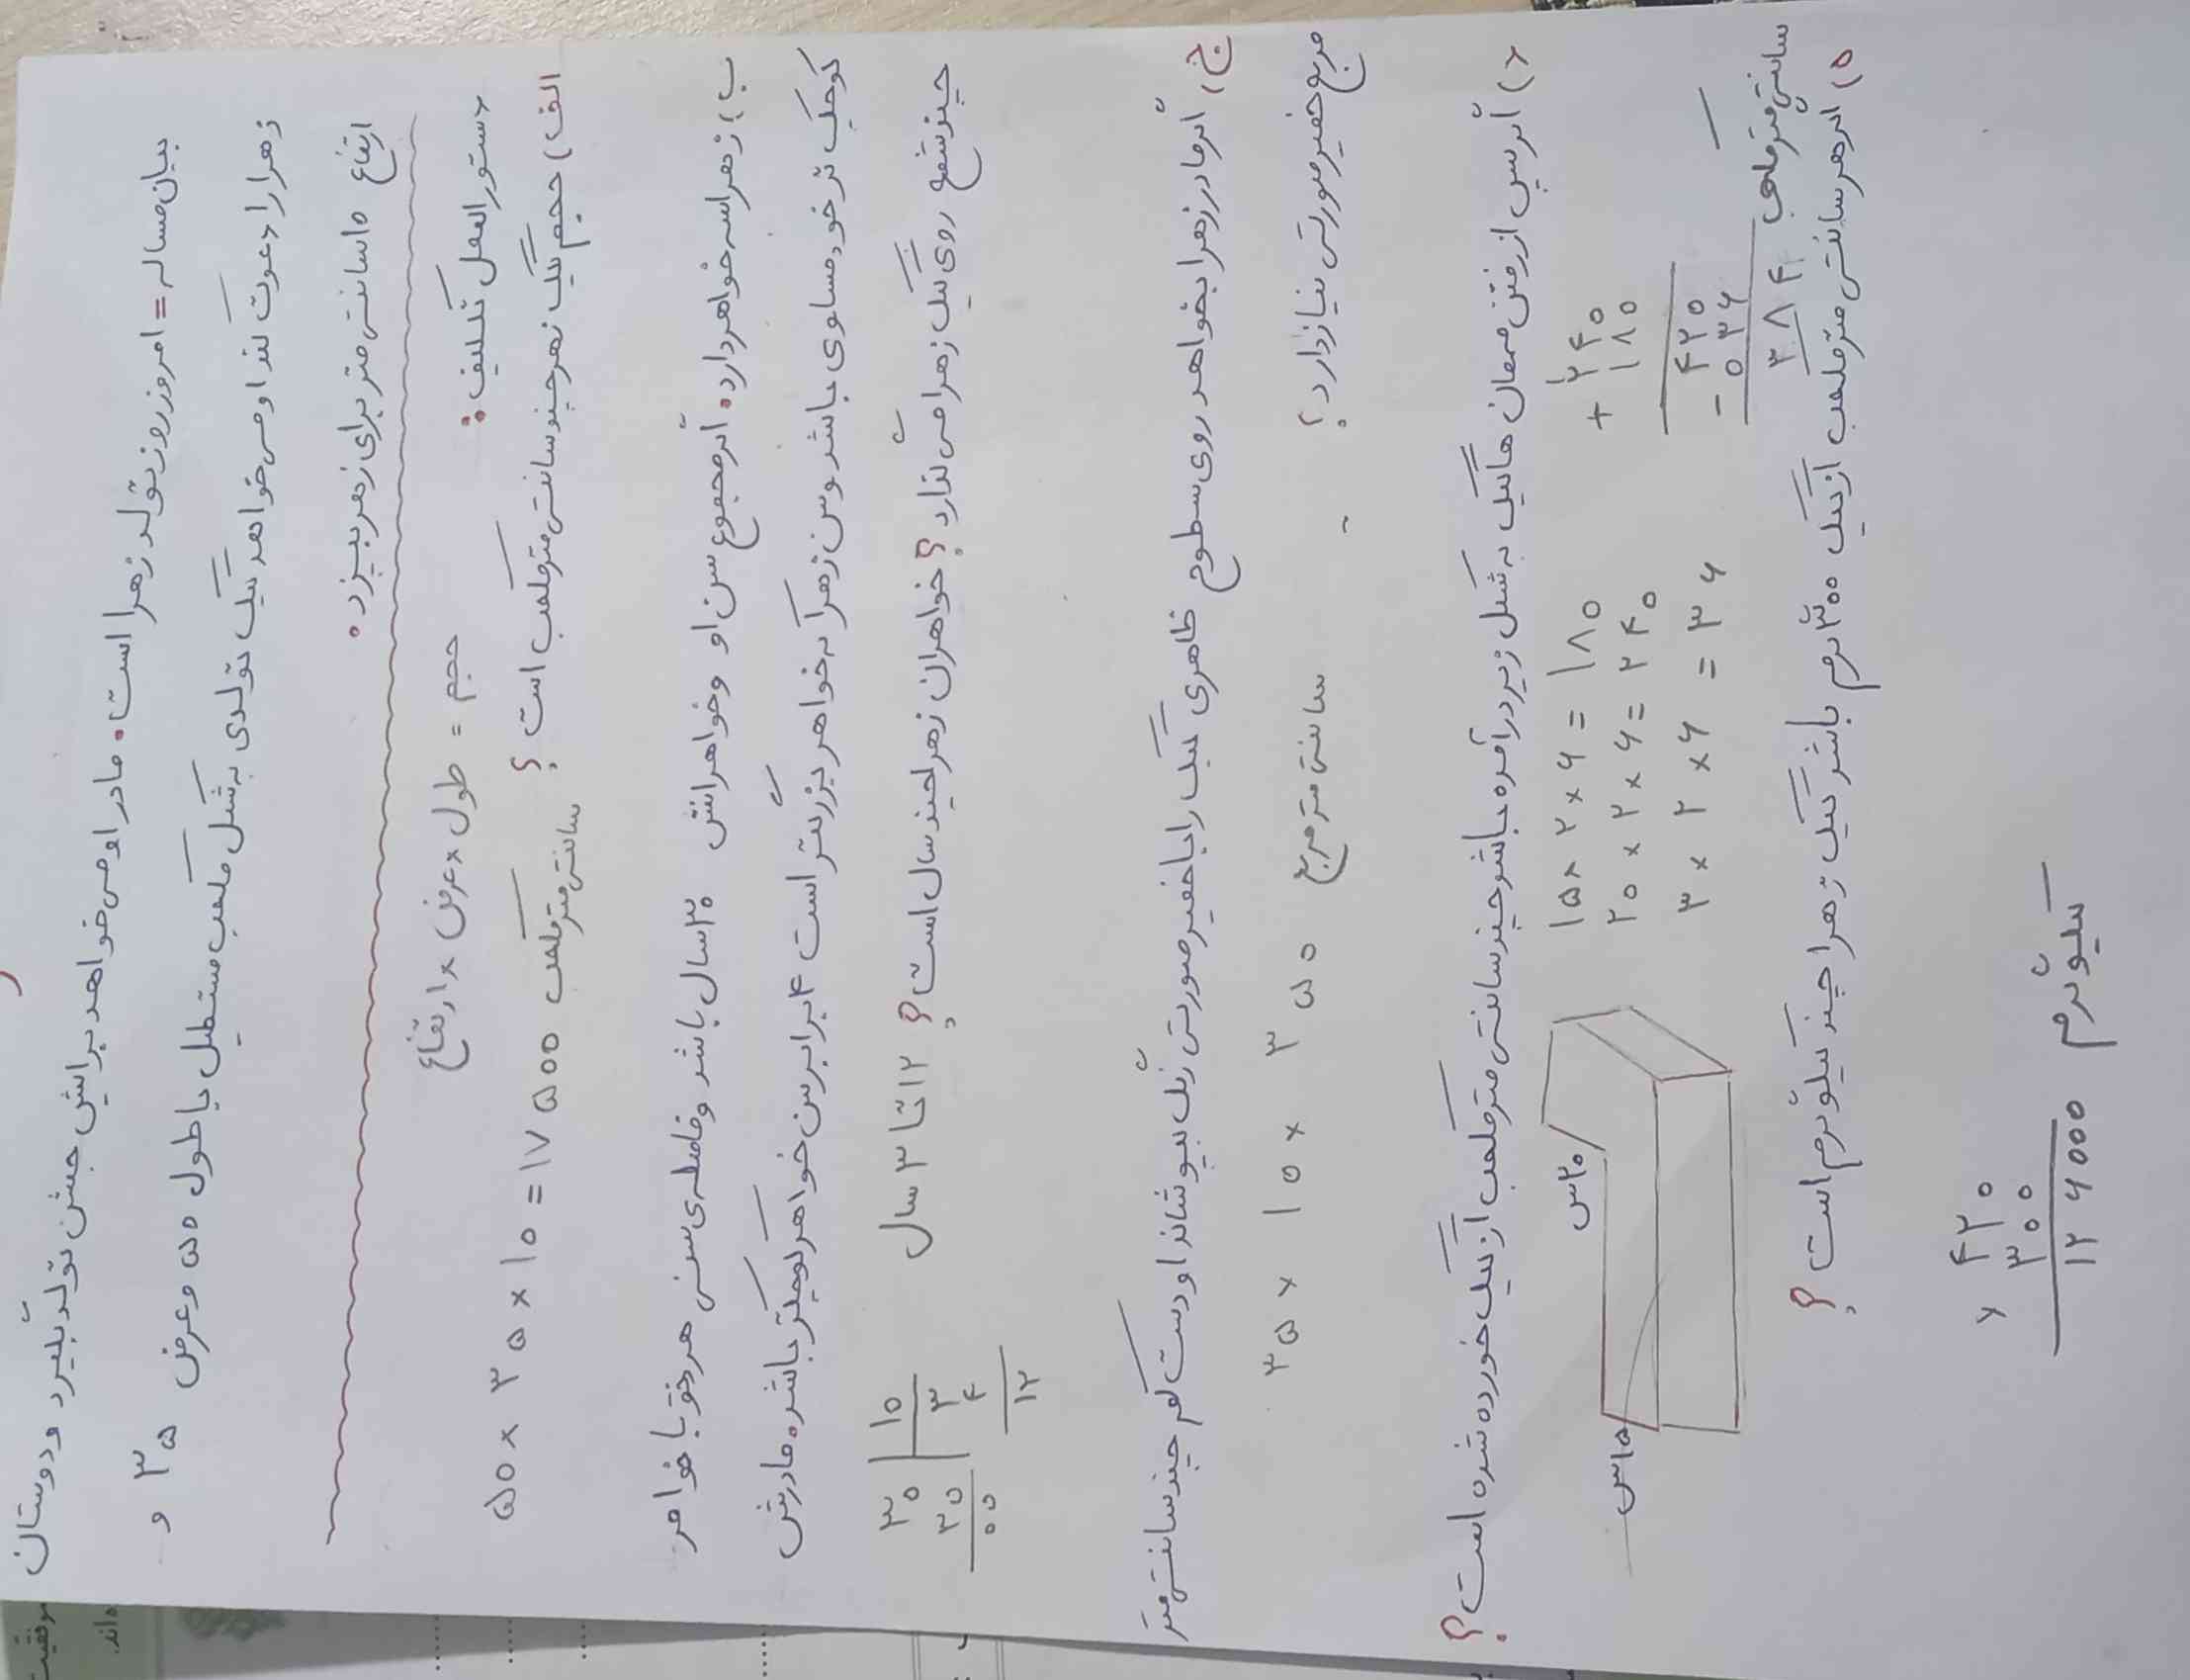 بیان مساله = امروز روز تولد زهرا است. مادر او می خواهد برایش جشن تولد بگیرد و دوستان
زهرا را دعوت کند او می خواهد کیک تولدی به شکل مکعب مستطیل با طول ۵۰ و عرض ۳۵ و
ارتفاع ۱۰ سانتی متر برای زهرا بپزد.
دستورالعمل تکلیف:
حجم = طول × عرض × ارتفاع
الف) حجم کیک زهرا چند سانتی متر مکعب است؟
۵۰ × ۳۵ × ۱۰ = ۱۷۵۰۰ سانتی متر مکعب
ب) زهرا سه خواهر دارد. اگر مجموع سن او و خواهرانش ۳۰ سال باشد و فاصله ی سنی هر خواهر با خواهر
کوچک تر خود مساوی باشد و سن زهرا که خواهر بزرگتر است ۴ برابر سن خواهر کوچکتر باشد. مادرش
چند شمع روی کیک زهرا می گذارد؟ خواهران زهرا چند سال است؟
۱۲ تا ۳ سال
۳۰ | ۱۰
۳۰ ۳
۰۰ ۴
۱۲
ج) اگر مادر زهرا بخواهد روی سطوح ظاهری کیک را با خمیر صورتی رنگ بپوشاند او دست کم چند سانتی متر
مربع خمیر صورتی نیاز دارد؟
۳۵ × ۱۰ × ۳۵۰ سانتی متر مربع
د) اگر پس از رفتن مهمان ها کیک به شکل زیر در آمده باشد چند سانتی متر مکعب از کیک خورده شده است؟
۲۰س
۱۵س
۱۵ × ۲ × ۶ = ۱۸۰
۲۰ × ۲ × ۶ = ۲۴۰
۳ × ۲ × ۶ = ۳۶
۲۴۰
+ ۱۸۰
۴۲۰
- ۰۳۶
۳۸۴ سانتی متر مکعب
ه) اگر هر سانتی متر مکعب از کیک ۳۰۰ گرم باشد کیک زهرا چند کیلوگرم است؟
۴۲۰
× ۳۰۰
۱۲۶۰۰۰ کیلوگرم